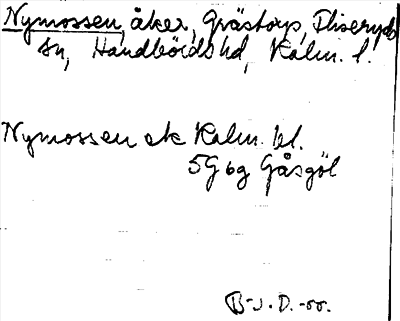 Nymossen, åker, Grästorp, Fliseryds
sn, Handbörds hd, Kalm. l.
Nymossen ek Kalm. bl.
5G 6g Gåsgöl
B-J. D. -00.